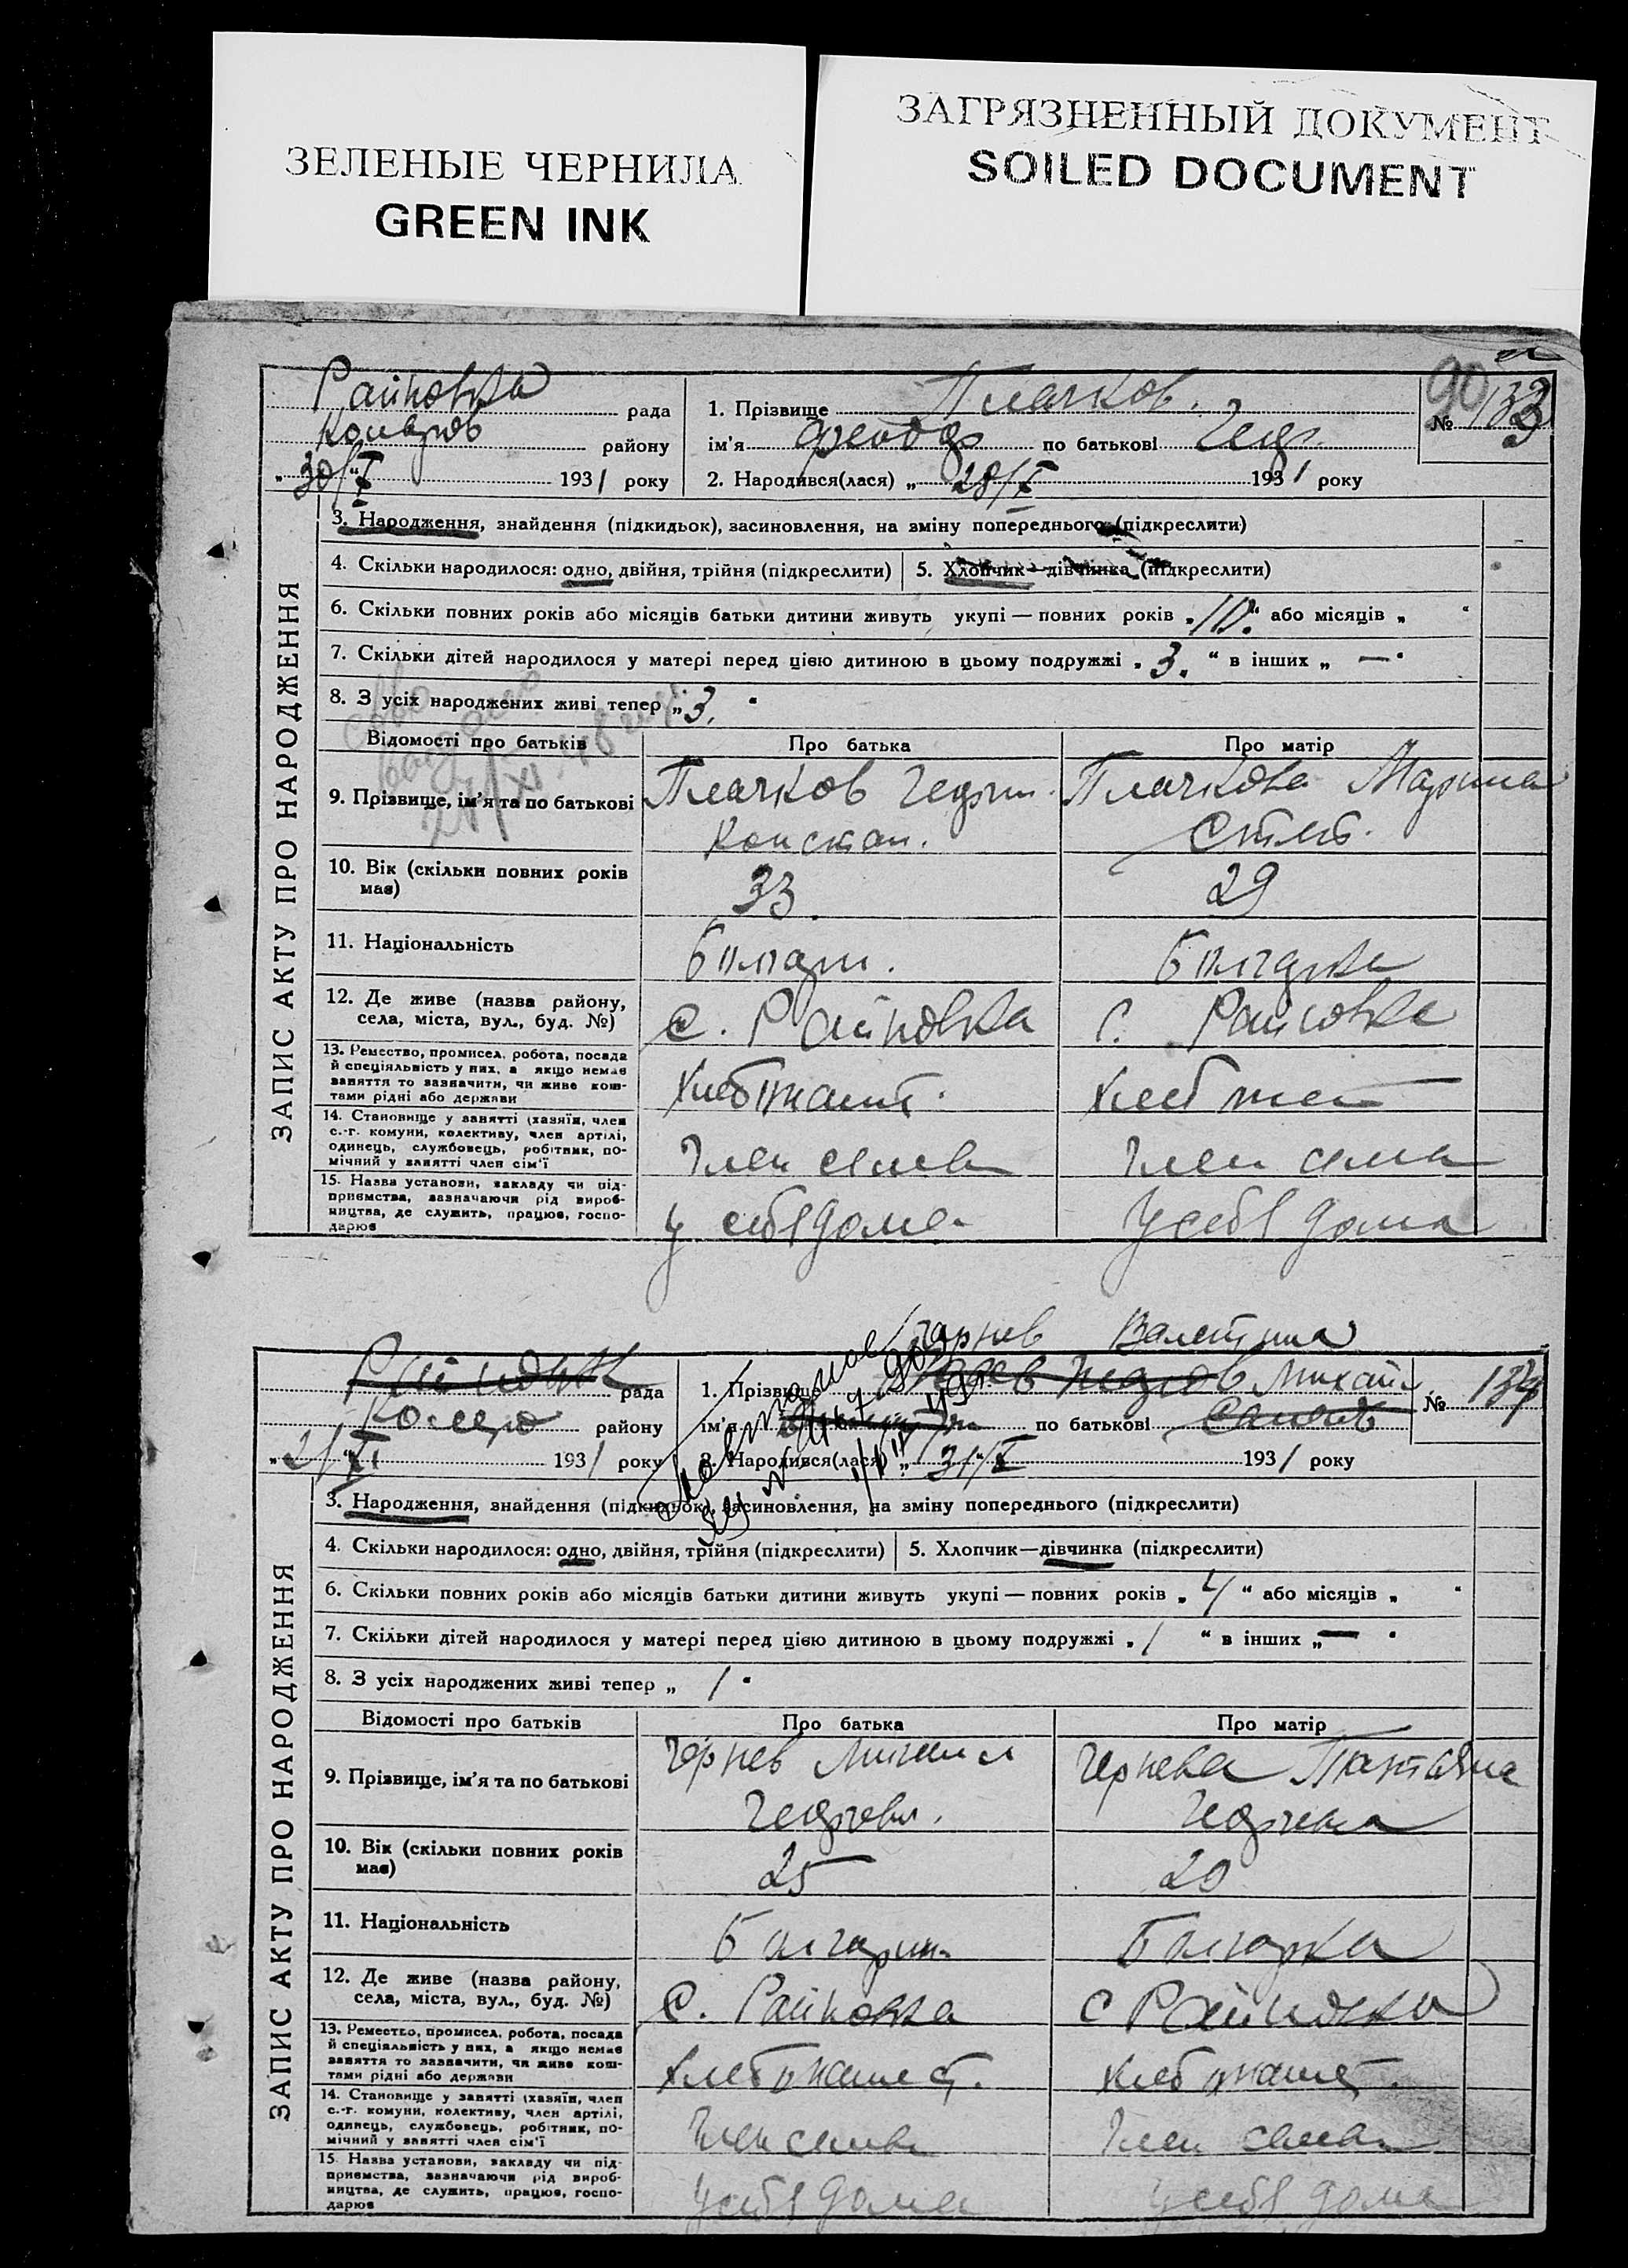 ЗЕЛЕНЫЕ ЧЕРНИЛА
GREEN INK
ЗАГРЯЗНЕННЫЙ ДОКУМЕНТ
SOILED DOCUMENT
90
Райновка рада
району
"30/X 1931 року
1. Прізвище Плачков.
ім'я по батькові
2. Народився(лася) „28/X 1931 року
№ 133
ЗАПИС АКТУ ПРО НАРОДЖЕННЯ
3. Народження, знайдення (підкидьок), засиновлення, на зміну попереднього (підкреслити)
4. Скільки народилося: одно, двійня, трійня (підкреслити)
5. Хлопчик—дівчинка (підкреслити)
6. Скільки повних років або місяців батьки дитини живуть укупі — повних років „10." або місяців „ "
7. Скільки дітей народилося у матері перед цією дитиною в цьому подружжі „3." в інших „ — "
8. З усіх народжених живі тепер „3. "
Відомості про батьків
Про батька
Про матір
9. Прізвище, ім'я та по батькові
Плачков
Констан.
Плачкова Марина
10. Вік (скільки повних років має)
33
29
11. Національність
Болгарка
12. Де живе (назва району, села, міста, вул., буд. №)
с. Райновка
с. Райновка
13. Ремество, промисел, робота, посада й спеціяльність у них, а якщо немає заняття то зазначити, чи живе коштами рідні або держави
14. Становище у занятті (хазяїн, член с.-г. комуни, колективу, член артілі, одинець, службовець, робітник, помічний у занятті член сім'ї
Член семьи
Член семьи
15. Назва установи, закладу чи підприємства, зазначаючи рід виробництва, де служить, працює, господарює
у себя дома
у себя дома
Чернев Валентина
рада
району
"2/XI 1931 року
1. Прізвище Михайл
ім'я по батькові
2. Народився(лася) „31/X 1931 року
№ 134
ЗАПИС АКТУ ПРО НАРОДЖЕННЯ
3. Народження, знайдення (підкидьок), засиновлення, на зміну попереднього (підкреслити)
4. Скільки народилося: одно, двійня, трійня (підкреслити)
5. Хлопчик—дівчинка (підкреслити)
6. Скільки повних років або місяців батьки дитини живуть укупі — повних років „4" або місяців „ "
7. Скільки дітей народилося у матері перед цією дитиною в цьому подружжі „1 " в інших „— "
8. З усіх народжених живі тепер „ 1 "
Відомості про батьків
Про батька
Про матір
9. Прізвище, ім'я та по батькові
Чернев Михаил
Чернева
10. Вік (скільки повних років має)
25
20
11. Національність
Болгарин
Болгарка
12. Де живе (назва району, села, міста, вул., буд. №)
с. Райновка
с Райновка
13. Ремество, промисел, робота, посада й спеціяльність у них, а якщо немає заняття то зазначити, чи живе коштами рідні або держави
14. Становище у занятті (хазяїн, член с.-г. комуни, колективу, член артілі, одинець, службовець, робітник, помічний у занятті член сім'ї
Член семьи
Член семьи
15. Назва установи, закладу чи підприємства, зазначаючи рід виробництва, де служить, працює, господарює
у себя дома
у себя дома